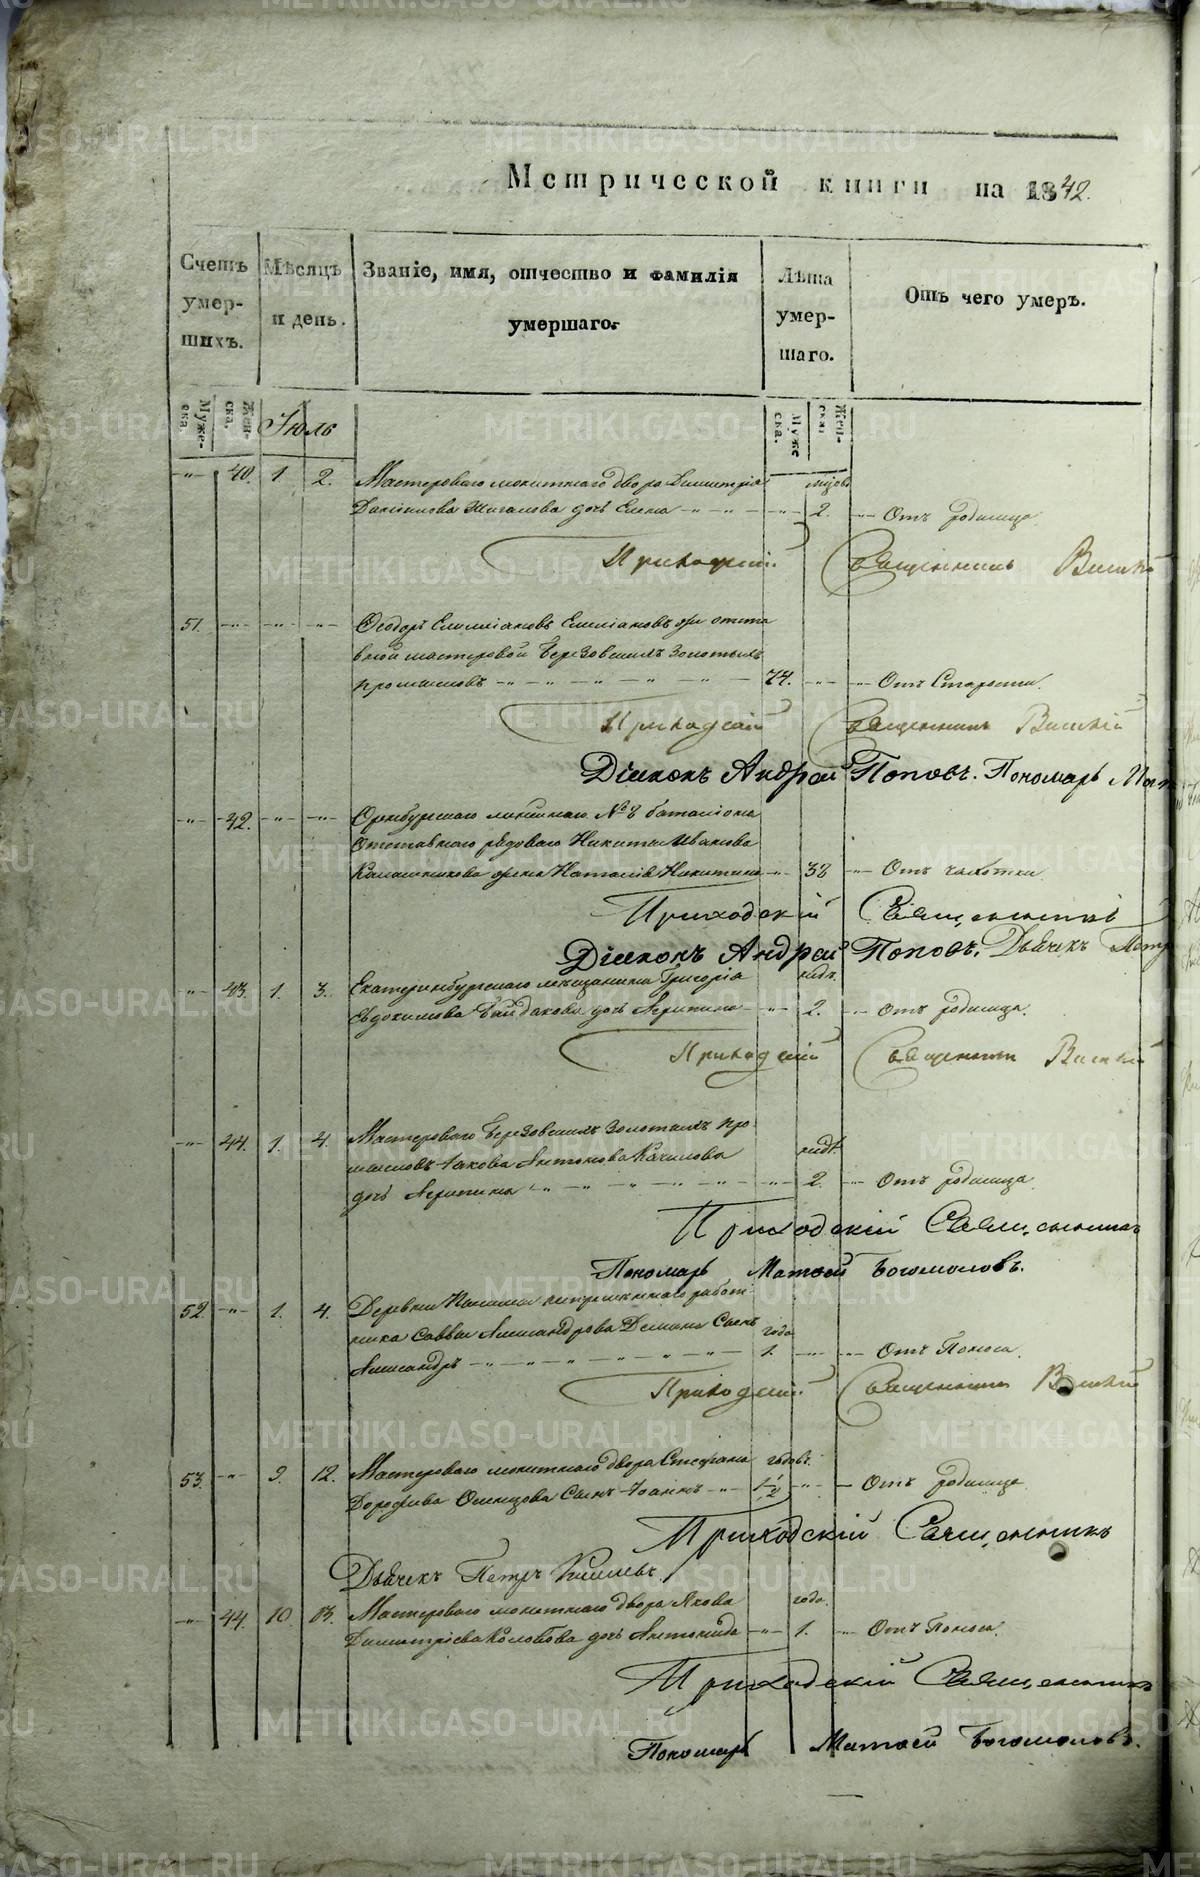 Метрической книги на 1842.
Счетъ умер-шихъ.
Мѣсяцъ и день.
Званіе, имя, отчество и фамилія умершаго.
Лѣта умер-шаго.
Отъ чего умеръ.
Муже-ска.
Жен-ска.
Іюль
Муже ска.
Жен-ска
40. 1 2. Мастероваго монетнаго двора Димитрія
Данилова дочь Елена 2. Отъ родимца.
Приходскій Священникъ
51. Ѳеодоръ Емиліановъ отста
вной мастеровой Березовскихъ Золотыхъ
промысловъ 74. Отъ Старости.
Приходскій Священникъ
Діаконъ Андрей Поповъ. Пономарь
42. Оренбургскаго линейнаго № 8 баталіона
Отставнаго рядоваго Никиты Иванова
Калашникова жена Наталія Никитина 38 Отъ чахотки.
Приходскій Священникъ
Діаконъ Андрей Поповъ. Дьячекъ Петр
43. 1. 3. Екатеринбургскаго мещанина Григорія нед.
Евдокимова Байдакова дочь Агрипина 2. Отъ родимца.
Приходскій Священникъ
44. 1. 4. Мастероваго Березовскихъ Золотыхъ про
мысловъ Іакова Антонова нед.
дочь Агрипина 2. Отъ родимца
Приходскій Священникъ
Пономарь Матѳей Богомоловъ.
52. 1. 4. Деревни работ-
ника Саввы Александрова Сынъ года
Александръ 1. Отъ Поноса.
Приходскій Священникъ
53. 9. 12. Мастероваго монетнаго двора Стефана годовъ.
Дорофѣева Сынъ Іоаннъ 1 1/2 Отъ родимца
Приходскій Священникъ
Дьячекъ Петръ
44. 10 13. Мастероваго монетнаго двора Якова года.
Димитріева Колобова дочь Антонида 1. Отъ Поноса.
Приходскій Священникъ
Пономарь Матѳей Богомоловъ.
METRIKI.GASO-URAL.RU